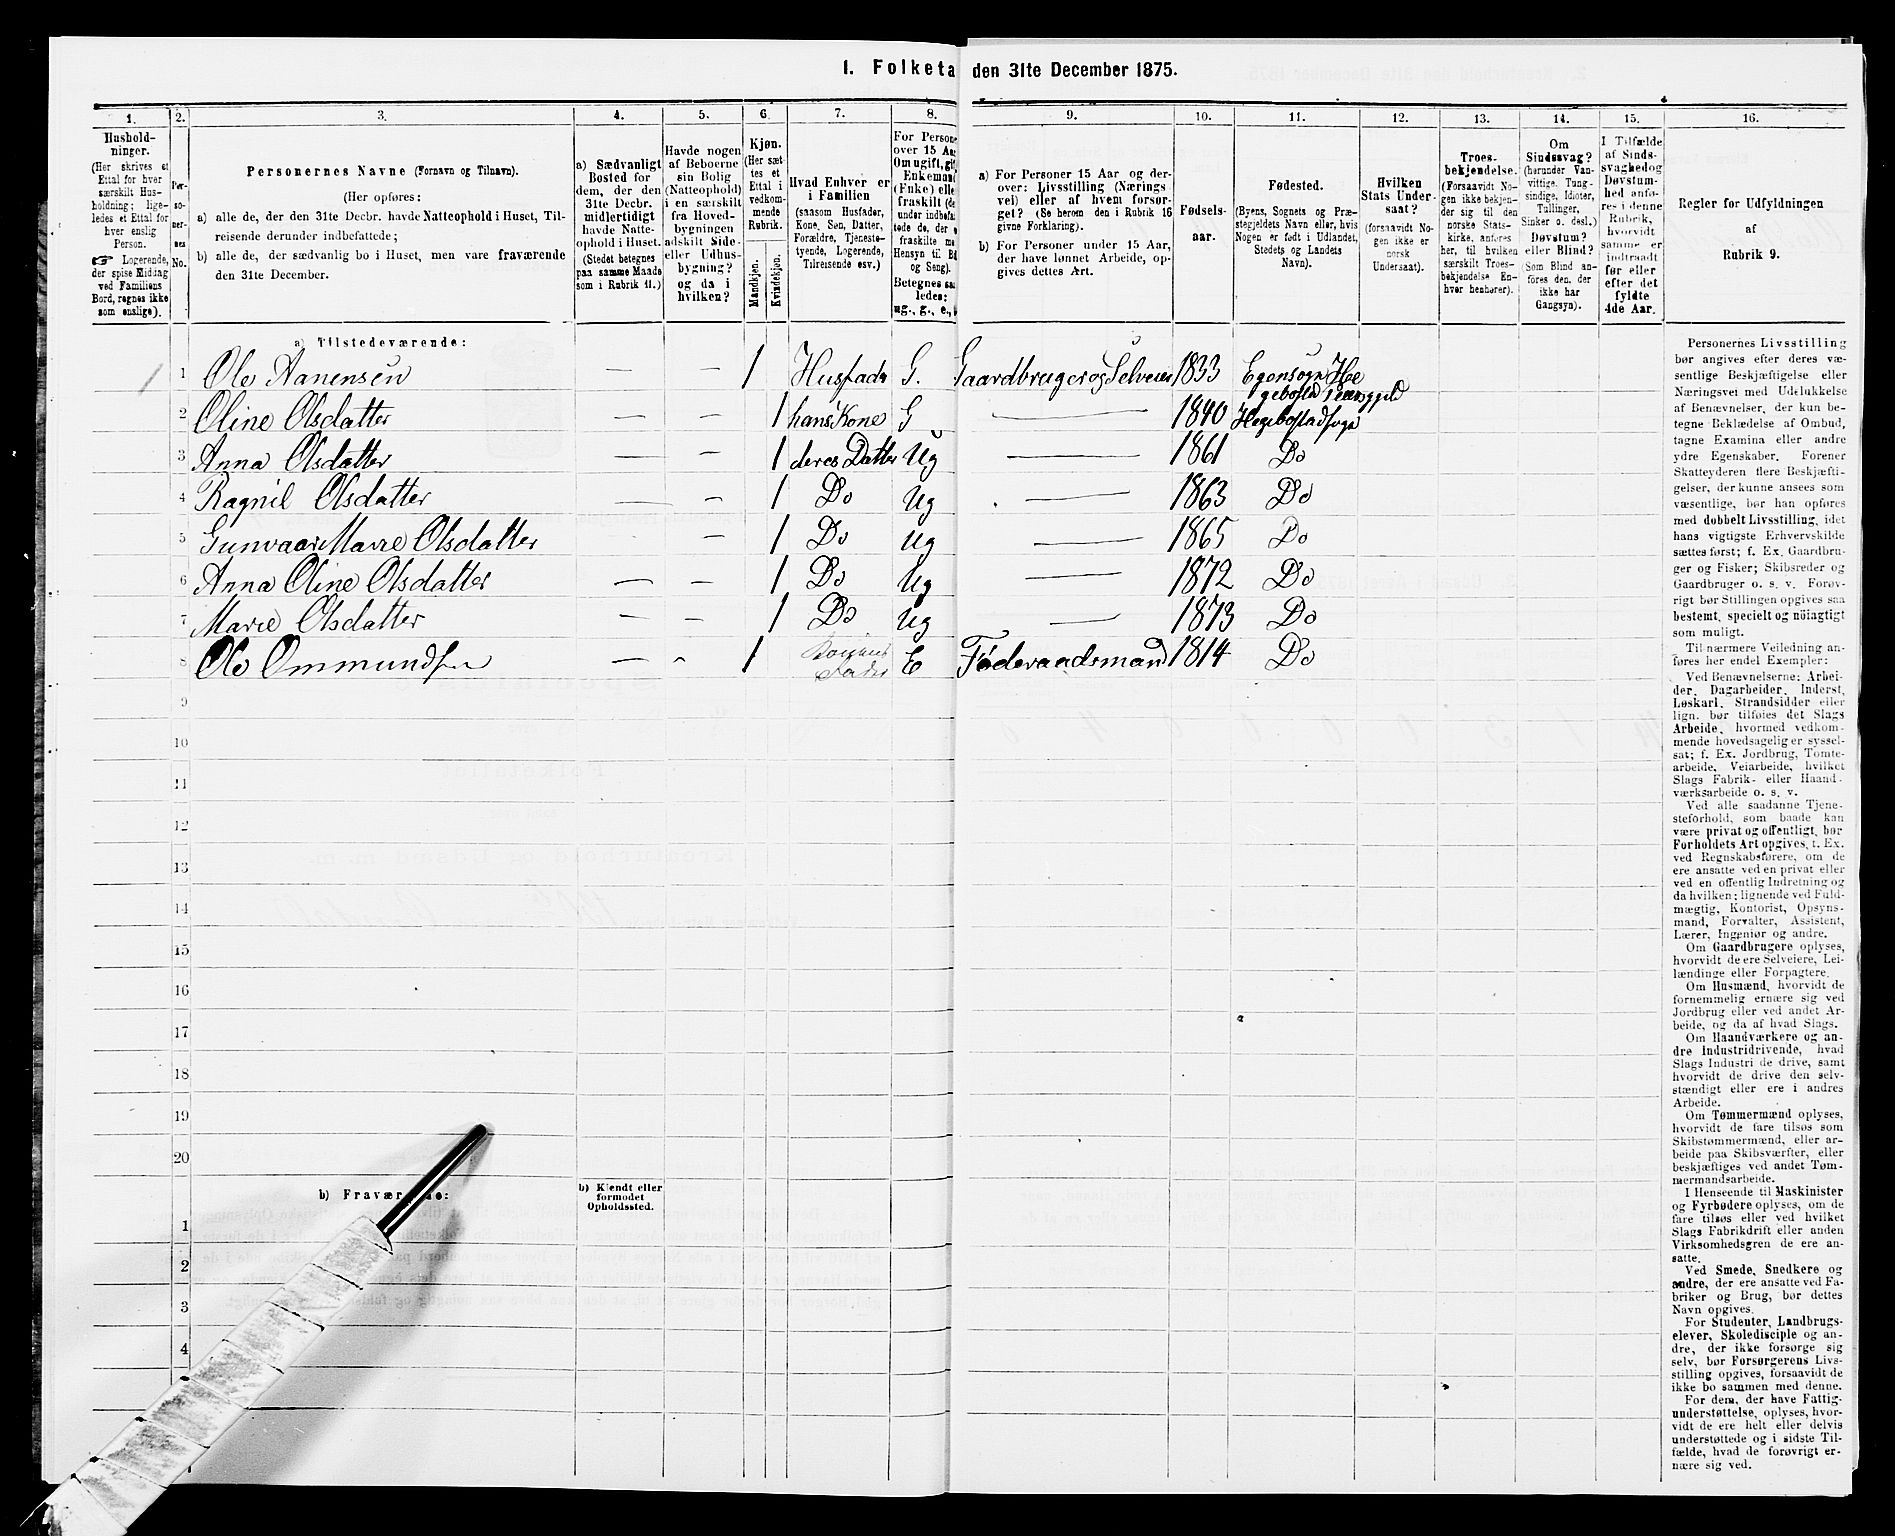 1. Folketa den 31te December 1875.
1.
Hushold-
ninger.
(Her skrives et
Ettal for hver
særskilt Hus-
holdning; lige-
ledes et Ettal for
hver enslig
Person.
☞ Logerende,
der spise Middag
ved Familiens
Bord, regnes ikke
som enslige).
2.
Per-
so-
ner-
nes
No.
3.
Personernes Navne (Fornavn og Tilnavn).
(Her opføres:
a) alle de, der den 31te Decbr. havde Natteophold i Huset, Til-
reisende derunder indbefattede;
b) alle de, der sædvanlig bo i Huset, men vare fraværende
den 31te December.
4.
a) Sædvanligt
Bosted for
dem, der den
31te Decbr.
midlertidigt
havde Natte-
ophold i Huset.
(Stedet betegnes
paa samme Maade
som i Rubrik 11.)
5.
Havde nogen
af Beboerne
sin Bolig
(Natteophold)
i en særskilt
fra Hoved-
bygningen
adskilt Side-
eller Udhus-
bygning?
og da i
hvilken?
6.
Kjøn.
(Her sæt-
tes et
Ettal i
vedkom-
mende
Rubrik.
Mandkjøn.
Kvindekjøn.
7.
Hvad Enhver er
i Familien
(saasom Husfader,
Kone, Søn, Datter,
Forældre, Tjeneste-
tyende, Logerende,
Tilreisende osv.)
8.
For Persone
over 15 Aa
Om ugift, gi
Enkeman
(Enke) elle
fraskilt (de
under indbefa
tede de, der
fraskilte m
Hensyn til B
og Seng).
Betegnes sa
ledes:
ug., g., e.,
9.
a) For Personer 15 Aar og der-
over: Livsstilling (Nærings-
vei) eller af hvem forsør-
get? (Se herom den i Rubrik 16
givne Forklaring).
b) For Personer under 15 Aar,
der have lønnet Arbeide, op-
gives dettes Art.
10.
Fødsels-
aar.
11.
Fødested.
(Byens, Sognets og Præ-
stegjeldets Navn eller, hvis
Nogen er født i Udlandet,
Stedets og Landets
Navn).
12.
Hvilken
Stats Under-
saat?
(forsaavidt No-
gen ikke er
norsk
Undersaat).
13.
Troes-
bekjendelse.
(Forsaavidt No-
gen ikke bekjen-
der sig til den
norske Stats-
kirke, anføres
her, til hvilken
særskilt Troes-
bekjendelse En-
hver henhører).
14.
Om
Sindssvag?
(herunder Van-
vittige, Tung-
sindige, Idioter,
Tullinger,
Sinker o. desl.)
Døvstum?
eller Blind?
(Som Blind an-
føres den, der
ikke har
Gangsyn).
15.
I Tilfælde
af Sinds-
svaghed og
Døvstum-
hed anfø-
res i denne
Rubrik,
hvorvidt
samme er
indtraadt
før eller
efter det
fyldte
4de Aar.
16.
Regler for Udfyldningen
af
Rubrik 9.
a) Tilstedeværende:
1 1 Ole Aanensen — — 1 Husfader G. Gaardbruger og Selveier 1833 Egensogn He
gebostad Præsgjeld
2 Oline Olsdatter — — 1 hans Kone G — 1840 Hegebostad sogn
3 Anna Olsdatter — — 1 deres Datter Ug — 1861 Do
4 Ragnil Olsdatter — — 1 Do Ug — 1863 Do
5 Gunvaar Marie Olsdatter — 1 Do Ug — 1865 Do
6 Anna Oline Olsdatter — — 1 Do Ug — 1872 Do
7 Marie Olsdatter — — 1 Do Ug — 1873 Do
8 Ole Ommundsen — - 1 Fader E Føderaadsmand 1814 Do
9
10
11
12
13
14
15
16
17
18
19
20
b) Fraværende:
b) Kjendt eller
formodet
Opholdssted.
1
2
3
4
Personernes Livsstilling
bør angives efter deres væ-
sentlige Beskjæftigelse eller
Næringsvei med Udelukkelse
af Benævnelser, der kun be-
tegne Beklædelse af Ombud,
tagne Examina eller andre
ydre Egenskaber. Forener
Skatteyderen flere Beskjæfti-
gelser, der kunne ansees som
væsentlige, bør han opføres
med dobbelt Livsstilling, idet
hans vigtigste Erhvervskilde
sættes først; f. Ex. Gaardbru-
ger og Fisker; Skibsreder og
Gaardbruger o. s. v. Forøv-
rigt bør Stillingen opgives saa
bestemt, specielt og nöiagtigt
som muligt.
Til nærmere Veiledning an-
føres her endel Exempler:
Ved Benævnelserne: Arbei-
der, Dagarbeider, Inderst,
Løskarl, Strandsidder eller
lign. bør tilføies det Slags
Arbeide, hvormed vedkom-
mende hovedsagelig er syssel-
sat; f. Ex. Jordbrug, Tomte-
arbeide, Veiarbeide, hvilket
Slags Fabrik- eller Haand-
værksarbeide o. s. v.
Ved alle saadanne Tjene-
steforhold, som baade kan
være privat og offentligt, bør
Forholdets Art opgives, t. Ex.
ved Regnskabsførere, om de
ere ansatte ved en privat eller
ved en offentlig Indretning og
da hvilken; lignende ved Fuld-
mægtig, Kontorist, Opsyns-
mand, Forvalter, Assistent,
Lærer, Ingeniør og andre.
Om Gaardbrugere oplyses,
hvorvidt de ere Selveiere, Lei-
lændinge eller Forpagtere.
Om Husmænd, hvorvidt de
fornemmelig ernære sig ved
Jordbrug eller ved andet Ar-
beide, og da af hvad Slags.
Om Haandværkere og an-
dre Industridrivende, hvad
Slags Industri de drive, samt
hvorvidt de drive den selv-
stændigt eller ere i andres
Arbeide.
Om Tømmermænd oplyses,
hvorvidt de fare tilsøs som
Skibstømmermænd, eller ar-
beide paa Skibsværfter, eller
beskjæftiges ved andet Tøm-
mermandsarbeide.
I Henseende til Maskinister
og Fyrbødere oplyses, om de
fare tilsøs eller ved hvilket
Slags Fabrikdrift eller anden
Virksomhedsgren de ere an-
satte.
Ved Smede, Snedkere og
andre, der ere ansatte ved Fa-
briker og Brug, bør dettes
Navn opgives.
For Studenter, Landbrugs-
elever, Skoledisciple og an-
dre, der ikke forsørge sig
selv, bør Forsørgerens Livs-
stilling opgives, forsaavidt de
ikke bo sammen med denne.
For dem, der have Fattig-
understøttelse, oplyses, hvor-
vidt de ere helt eller delvis
understøttede og i sidste Til-
fælde, hvad de forøvrigt er-
nære sig ved.